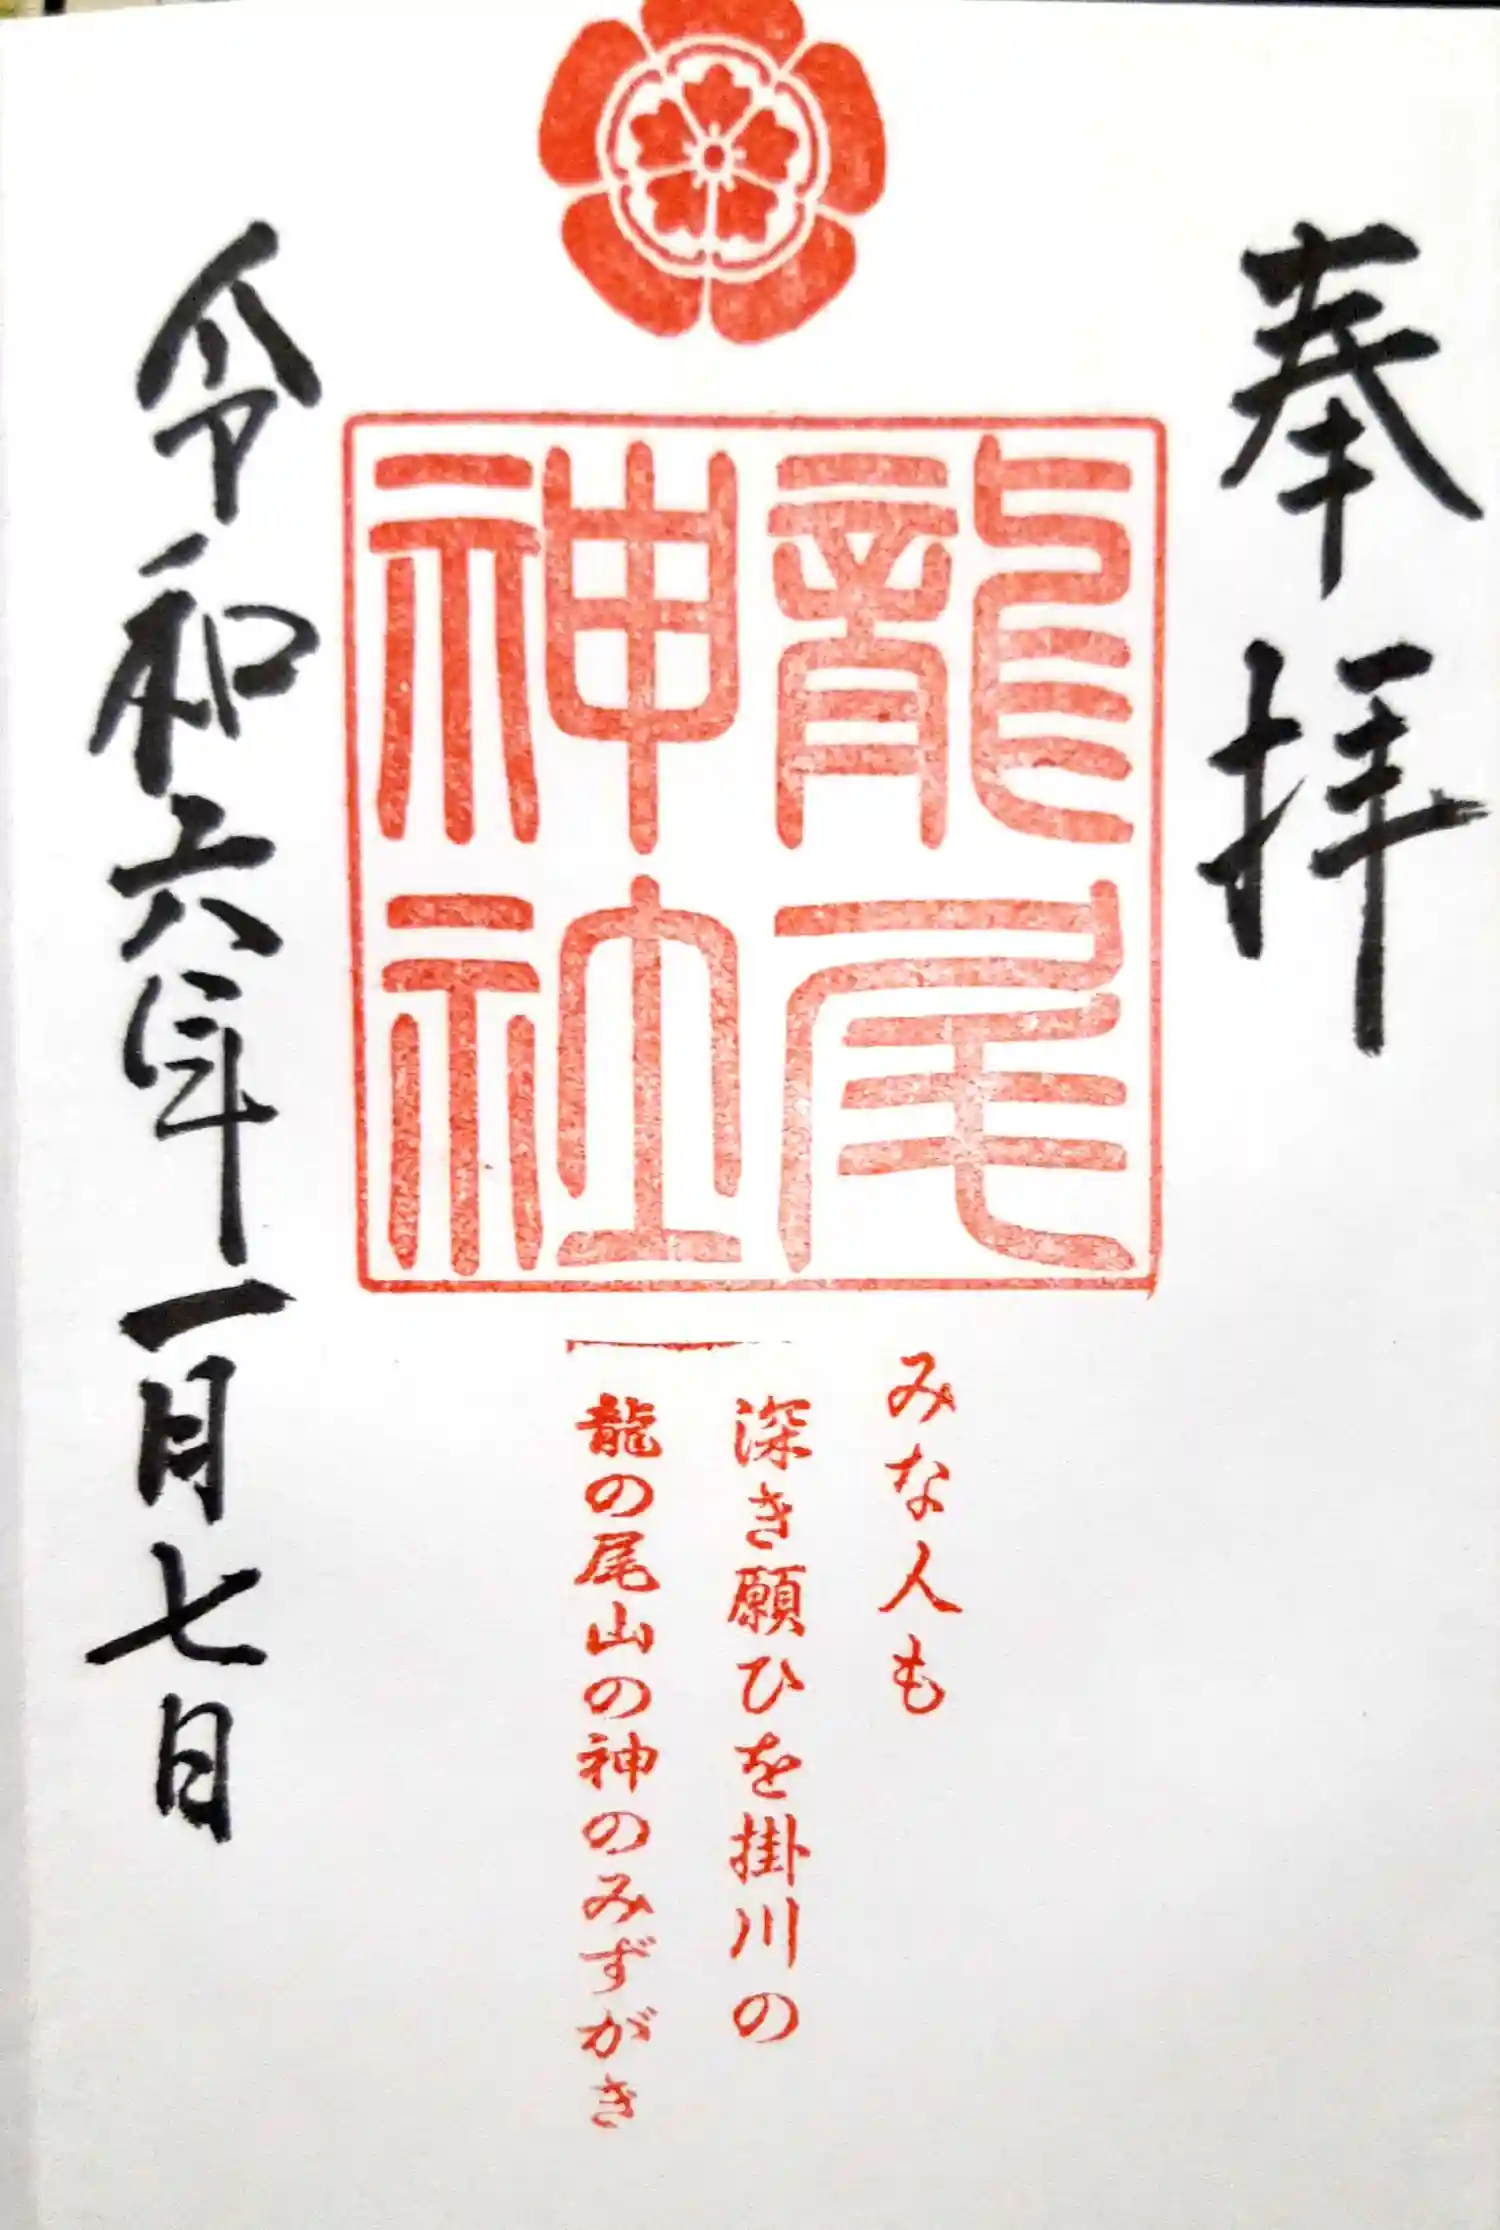 奉拝
龍尾
神社
みな人も
深き願ひを掛川の
龍の尾山の神のみずがき
令和六年一月七日